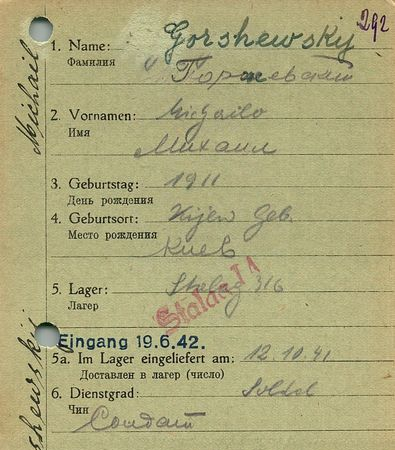 292
1. Name: Gorshewsky
Фамилия Горжевский
2. Vornamen: Michailo
Имя Михаил
3. Geburtstag: 1911
День рождения
4. Geburtsort: Kijew Geb.
Место рождения Киев
5. Lager: Stalag 316
Лагер Stalag I A
Eingang 19.6.42.
5a. Im Lager eingeliefert am: 12.10.41
Доставлен в лагер (число)
6. Dienstgrad: Soldat
Чин Солдат
Michail